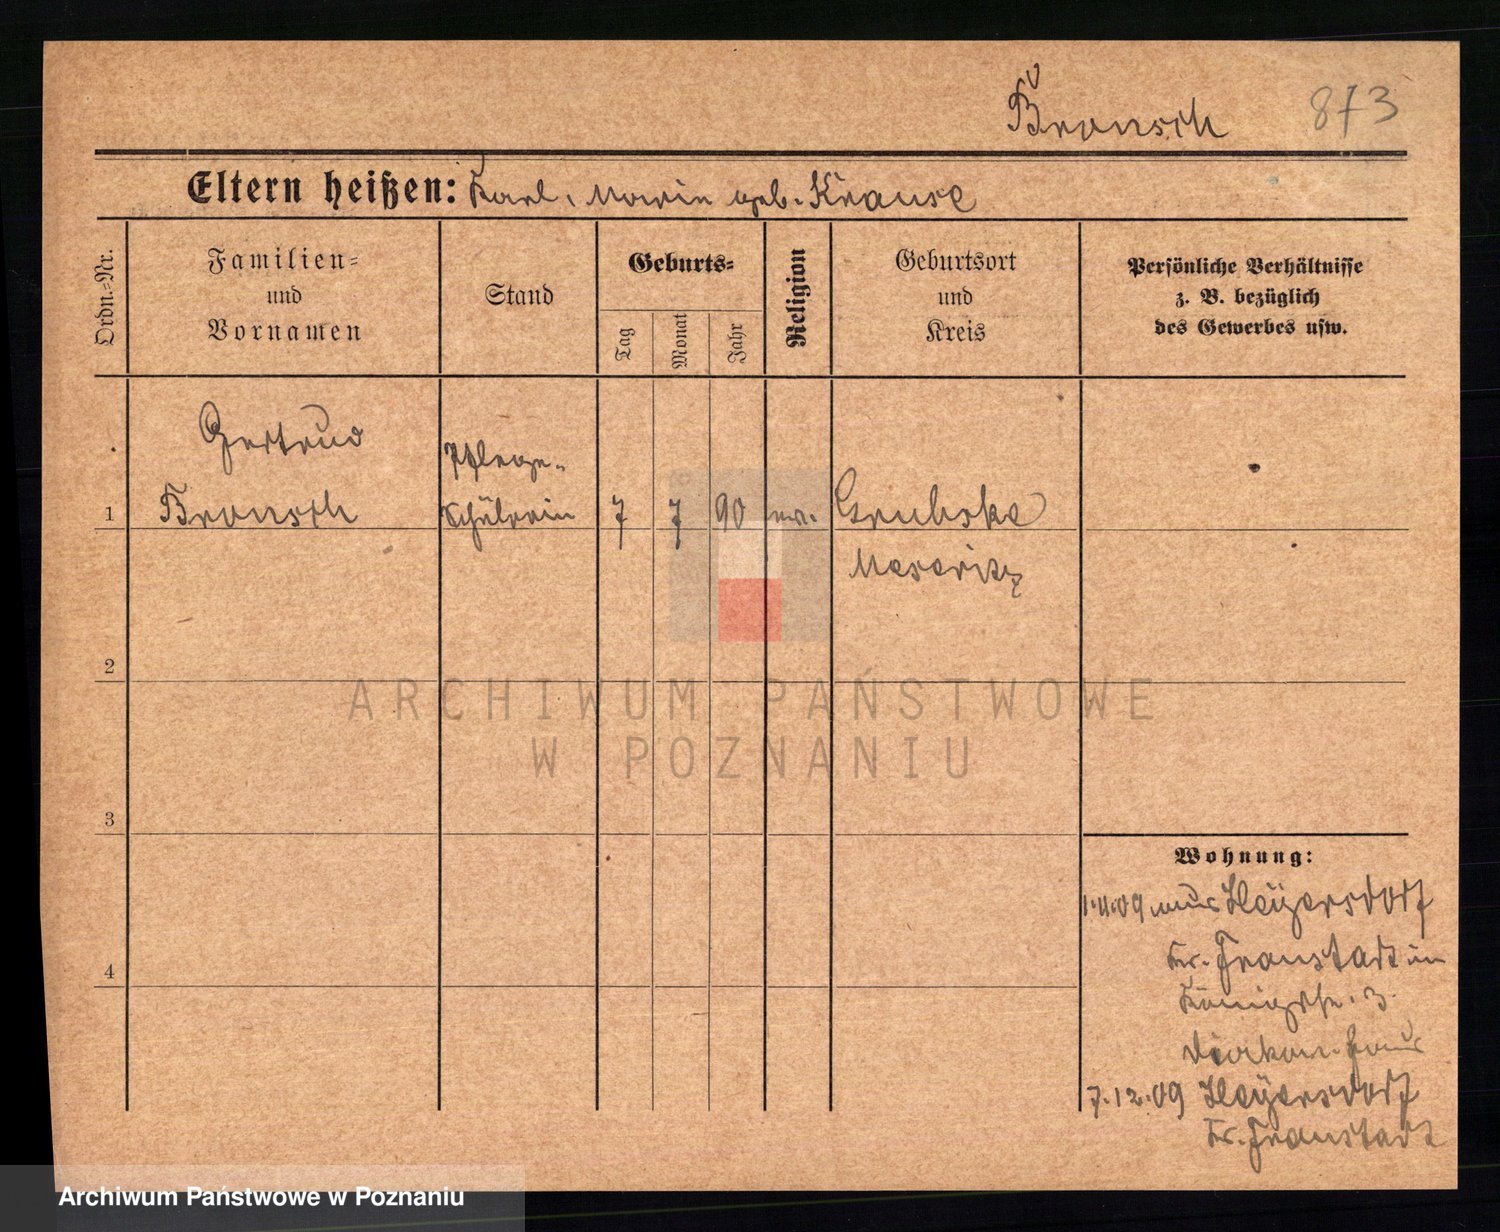 Bronsch 873
Eltern heißen: Karl, Marie geb. Krause
Ordn.=Nr.
Familien=
und
Vornamen
Stand
Geburts=
Tag
Monat
Jahr
Religion
Geburtsort
und
Kreis
Persönliche Verhältnisse
z. B. bezüglich
des Gewerbes usw.
Gertrud
Bronsch
Pflege-
schülerin
1
7
7
90
ev.
Grubske
Meseritz
2
3
4
Wohnung:
1.4.09 aus Heyersdorf
Kr. Fraustadt in
Königstr. 3
Diakon. Haus
7.12.09 Heyersdorf
Kr. Fraustadt
ARCHIWUM PAŃSTWOWE
W POZNANIU
Archiwum Państwowe w Poznaniu